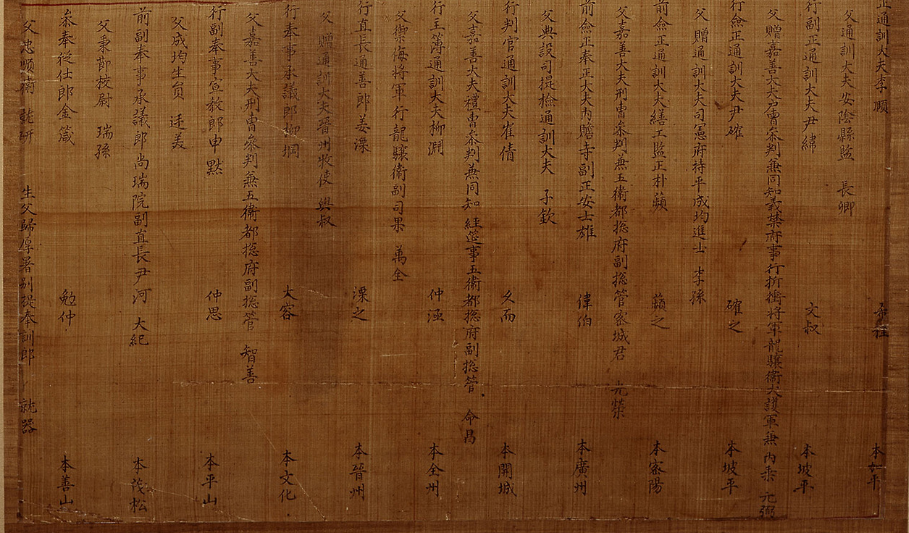 正通訓大夫李順 本
父通訓大夫安陰縣監 長卿
行副正通訓大夫尹緯 文叔 本坡平
父贈嘉善大夫戶曹叅判兼同知義禁府事行折衝將軍龍驤衛大護軍兼內乘 元弼
行僉正通訓大夫尹確 確之 本坡平
父贈通訓大夫司憲府持平成均進士 李孫
前僉正通訓大夫繕工監正朴蘋 蘋之 本密陽
父嘉善大夫刑曹叅判兼五衛都摠府副摠管密城君 光榮
前僉正奉正大夫內贍寺副正安士雄 偉伯 本廣州
父典設司提檢通訓大夫 子欽
行判官通訓大夫崔倩 久而 本開城
父嘉善大夫禮曹叅判兼同知 經筵事五衛都摠府副摠管 命昌
行主簿通訓大夫柳淵 仲 本全州
父禦侮將軍行龍驤衛副司果 萬全
行直長通善郎姜溧 溧之 本晉州
父贈通訓大夫晉州牧使 與叔
行奉事承議郎柳 大容 本文化
父嘉善大夫刑曹叅判兼五衛都摠府副摠管 智善
行副奉事宣敎郎申點 仲思 本平山
父成均生員 廷美
前副奉事承議郎尚瑞院副直長尹河 大紀 本茂松
父秉節校尉 瑞孫
叅奉從仕郎金箴 勉仲 本善山
父忠順衛 就硏 生父歸厚署別提奉訓郎 就器